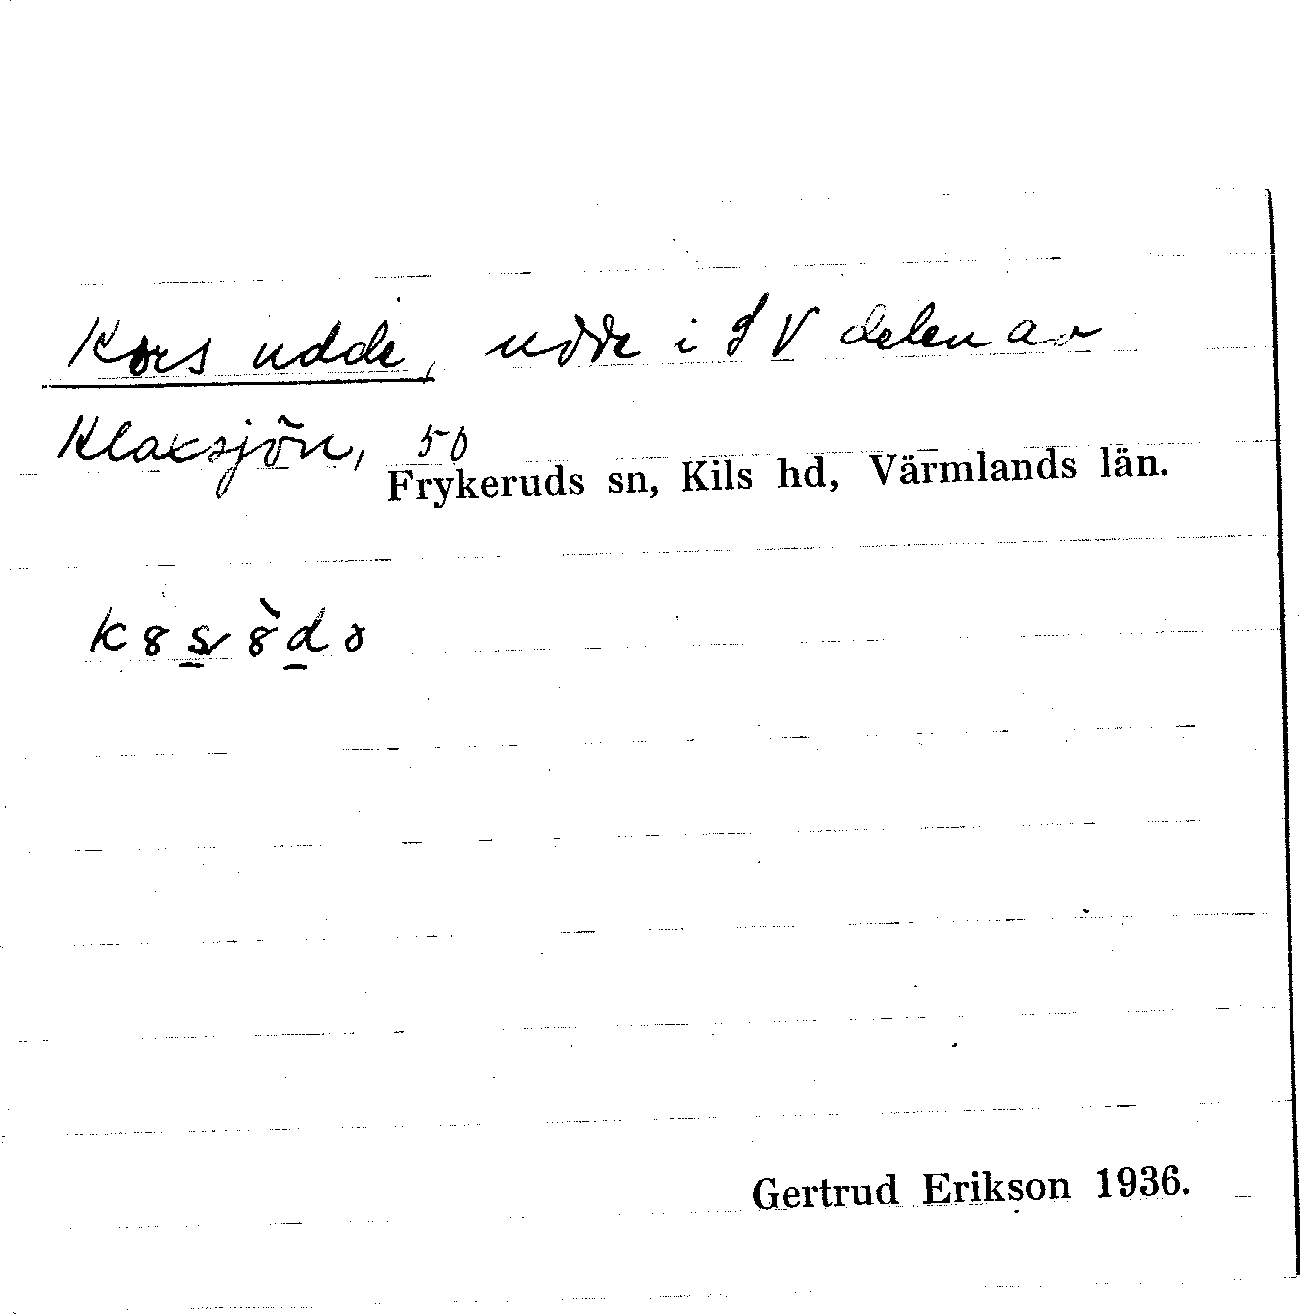 Kors udde, udde i SV delen av
Klaxsjön, 50
Frykeruds sn, Kils hd, Värmlands län.
Gertrud Erikson 1936.